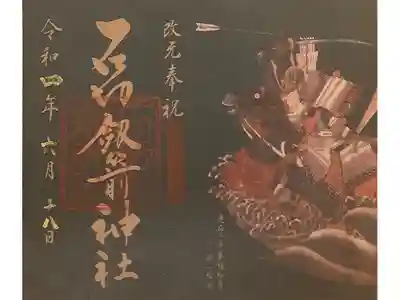 改元奉祝
石切劔箭神社
令和四年 六月 十八日